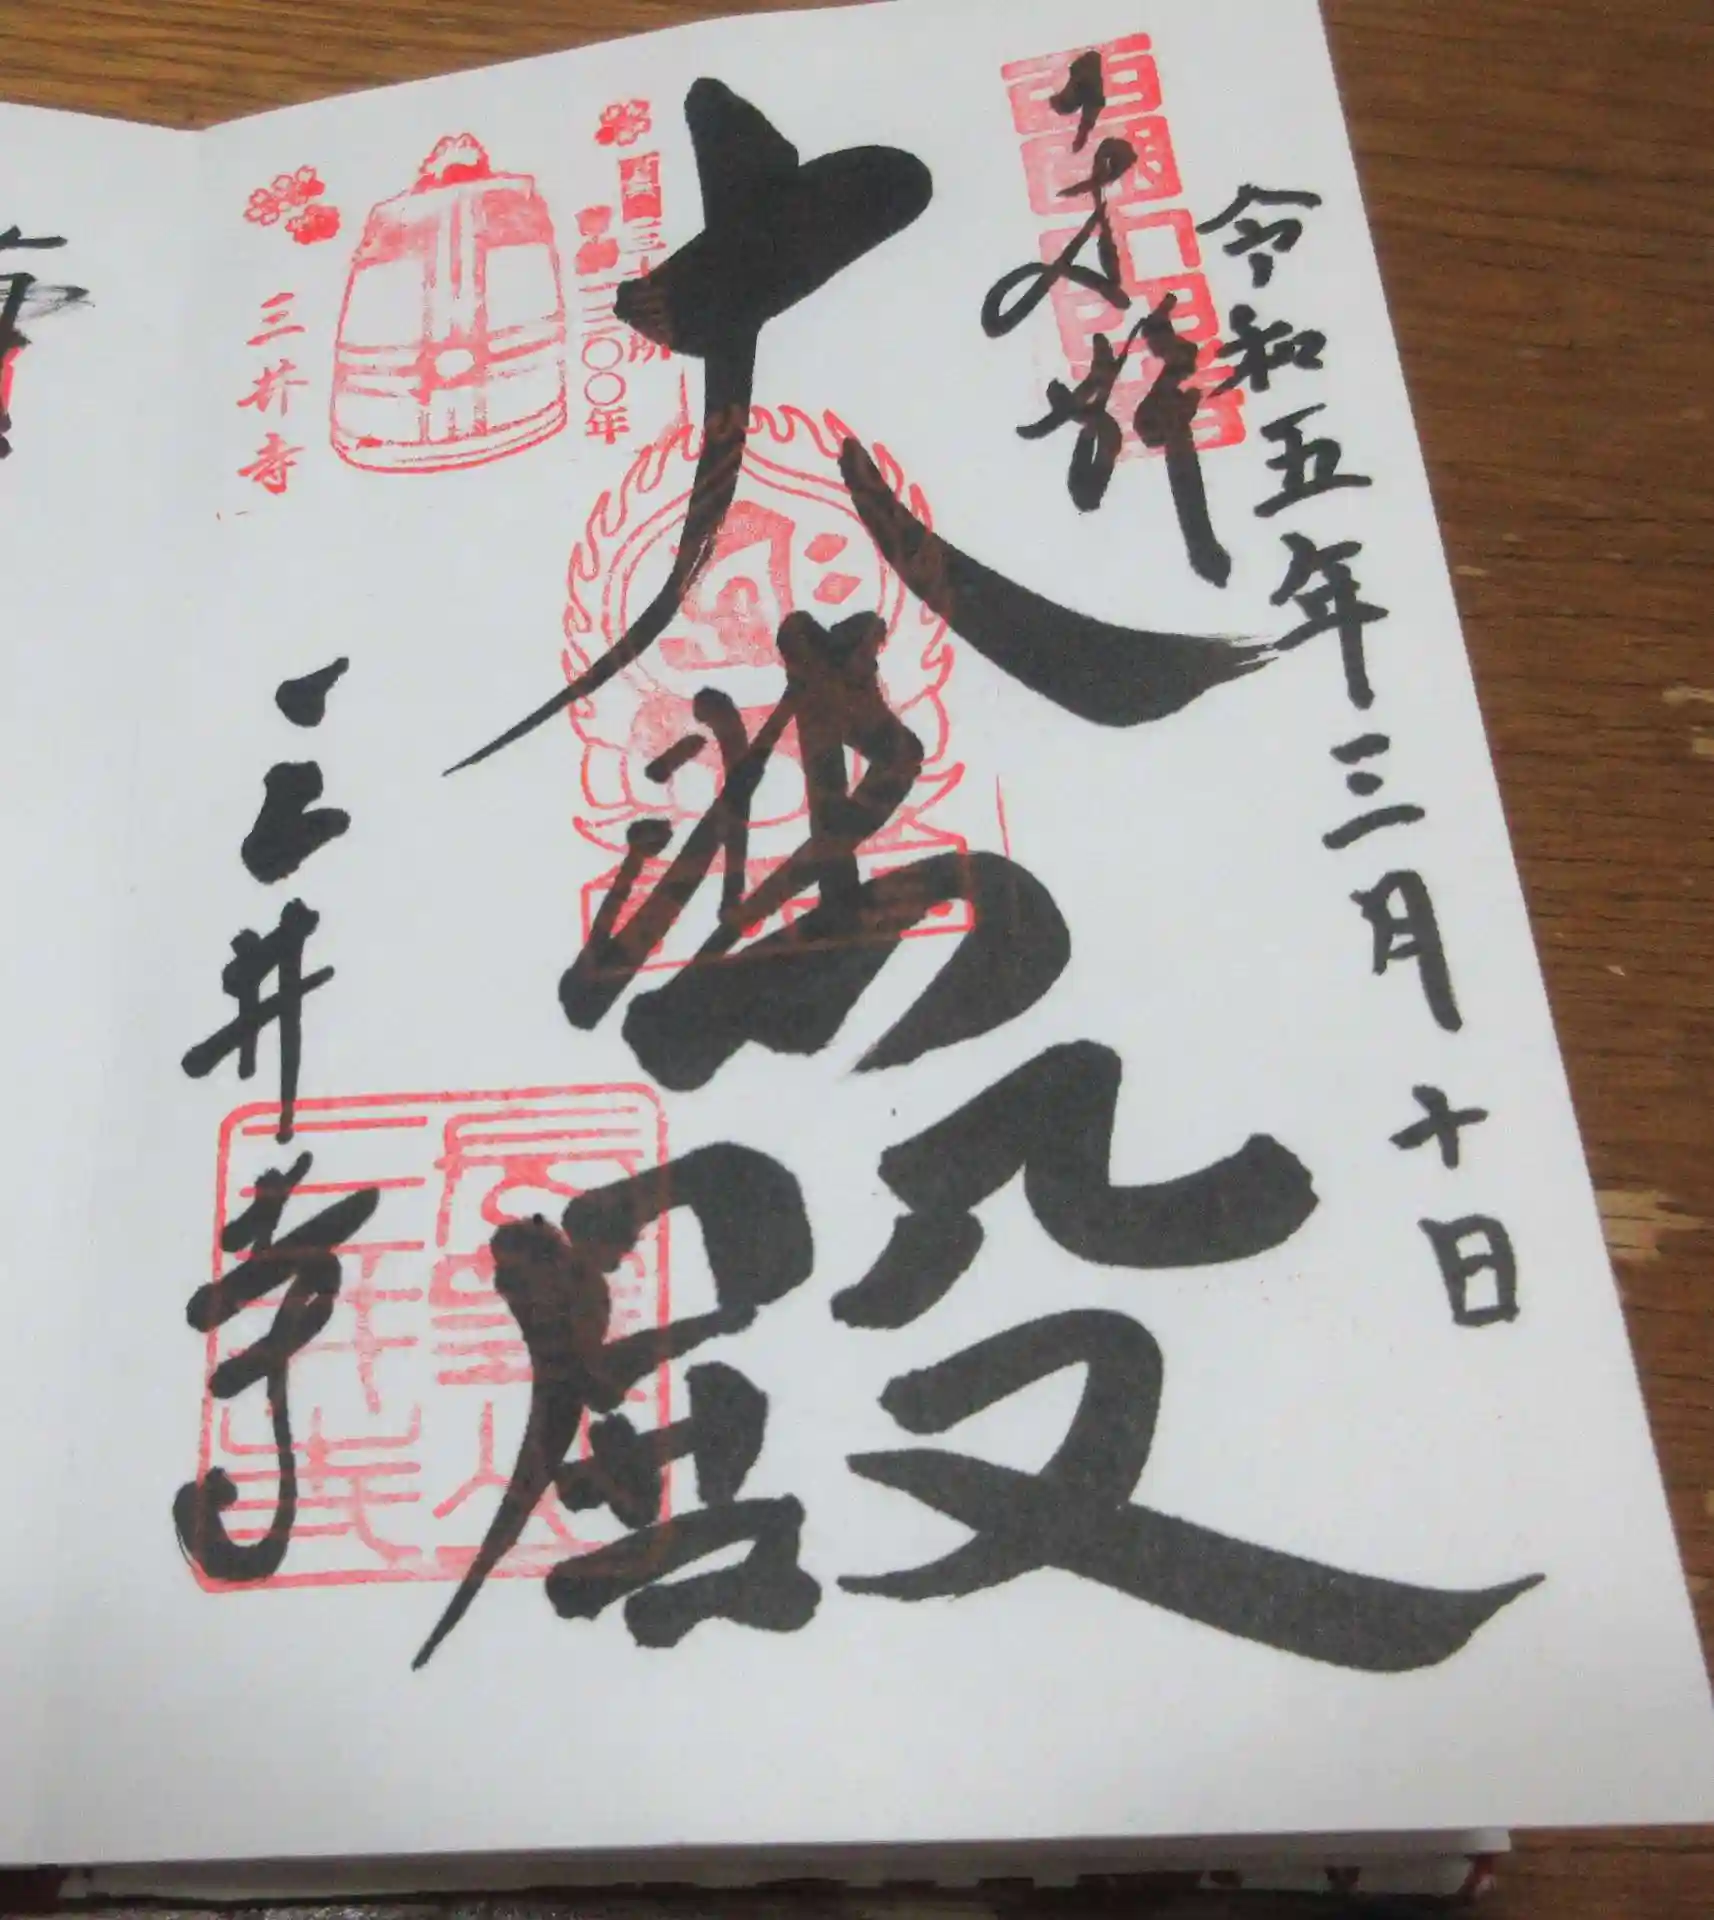 令和五年三月十日
奉拝
大悲殿
三井寺
西国十四番
西国三十三所
草創一三〇〇年
三井寺